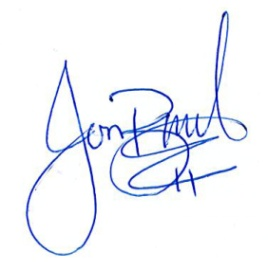 Jon Paul